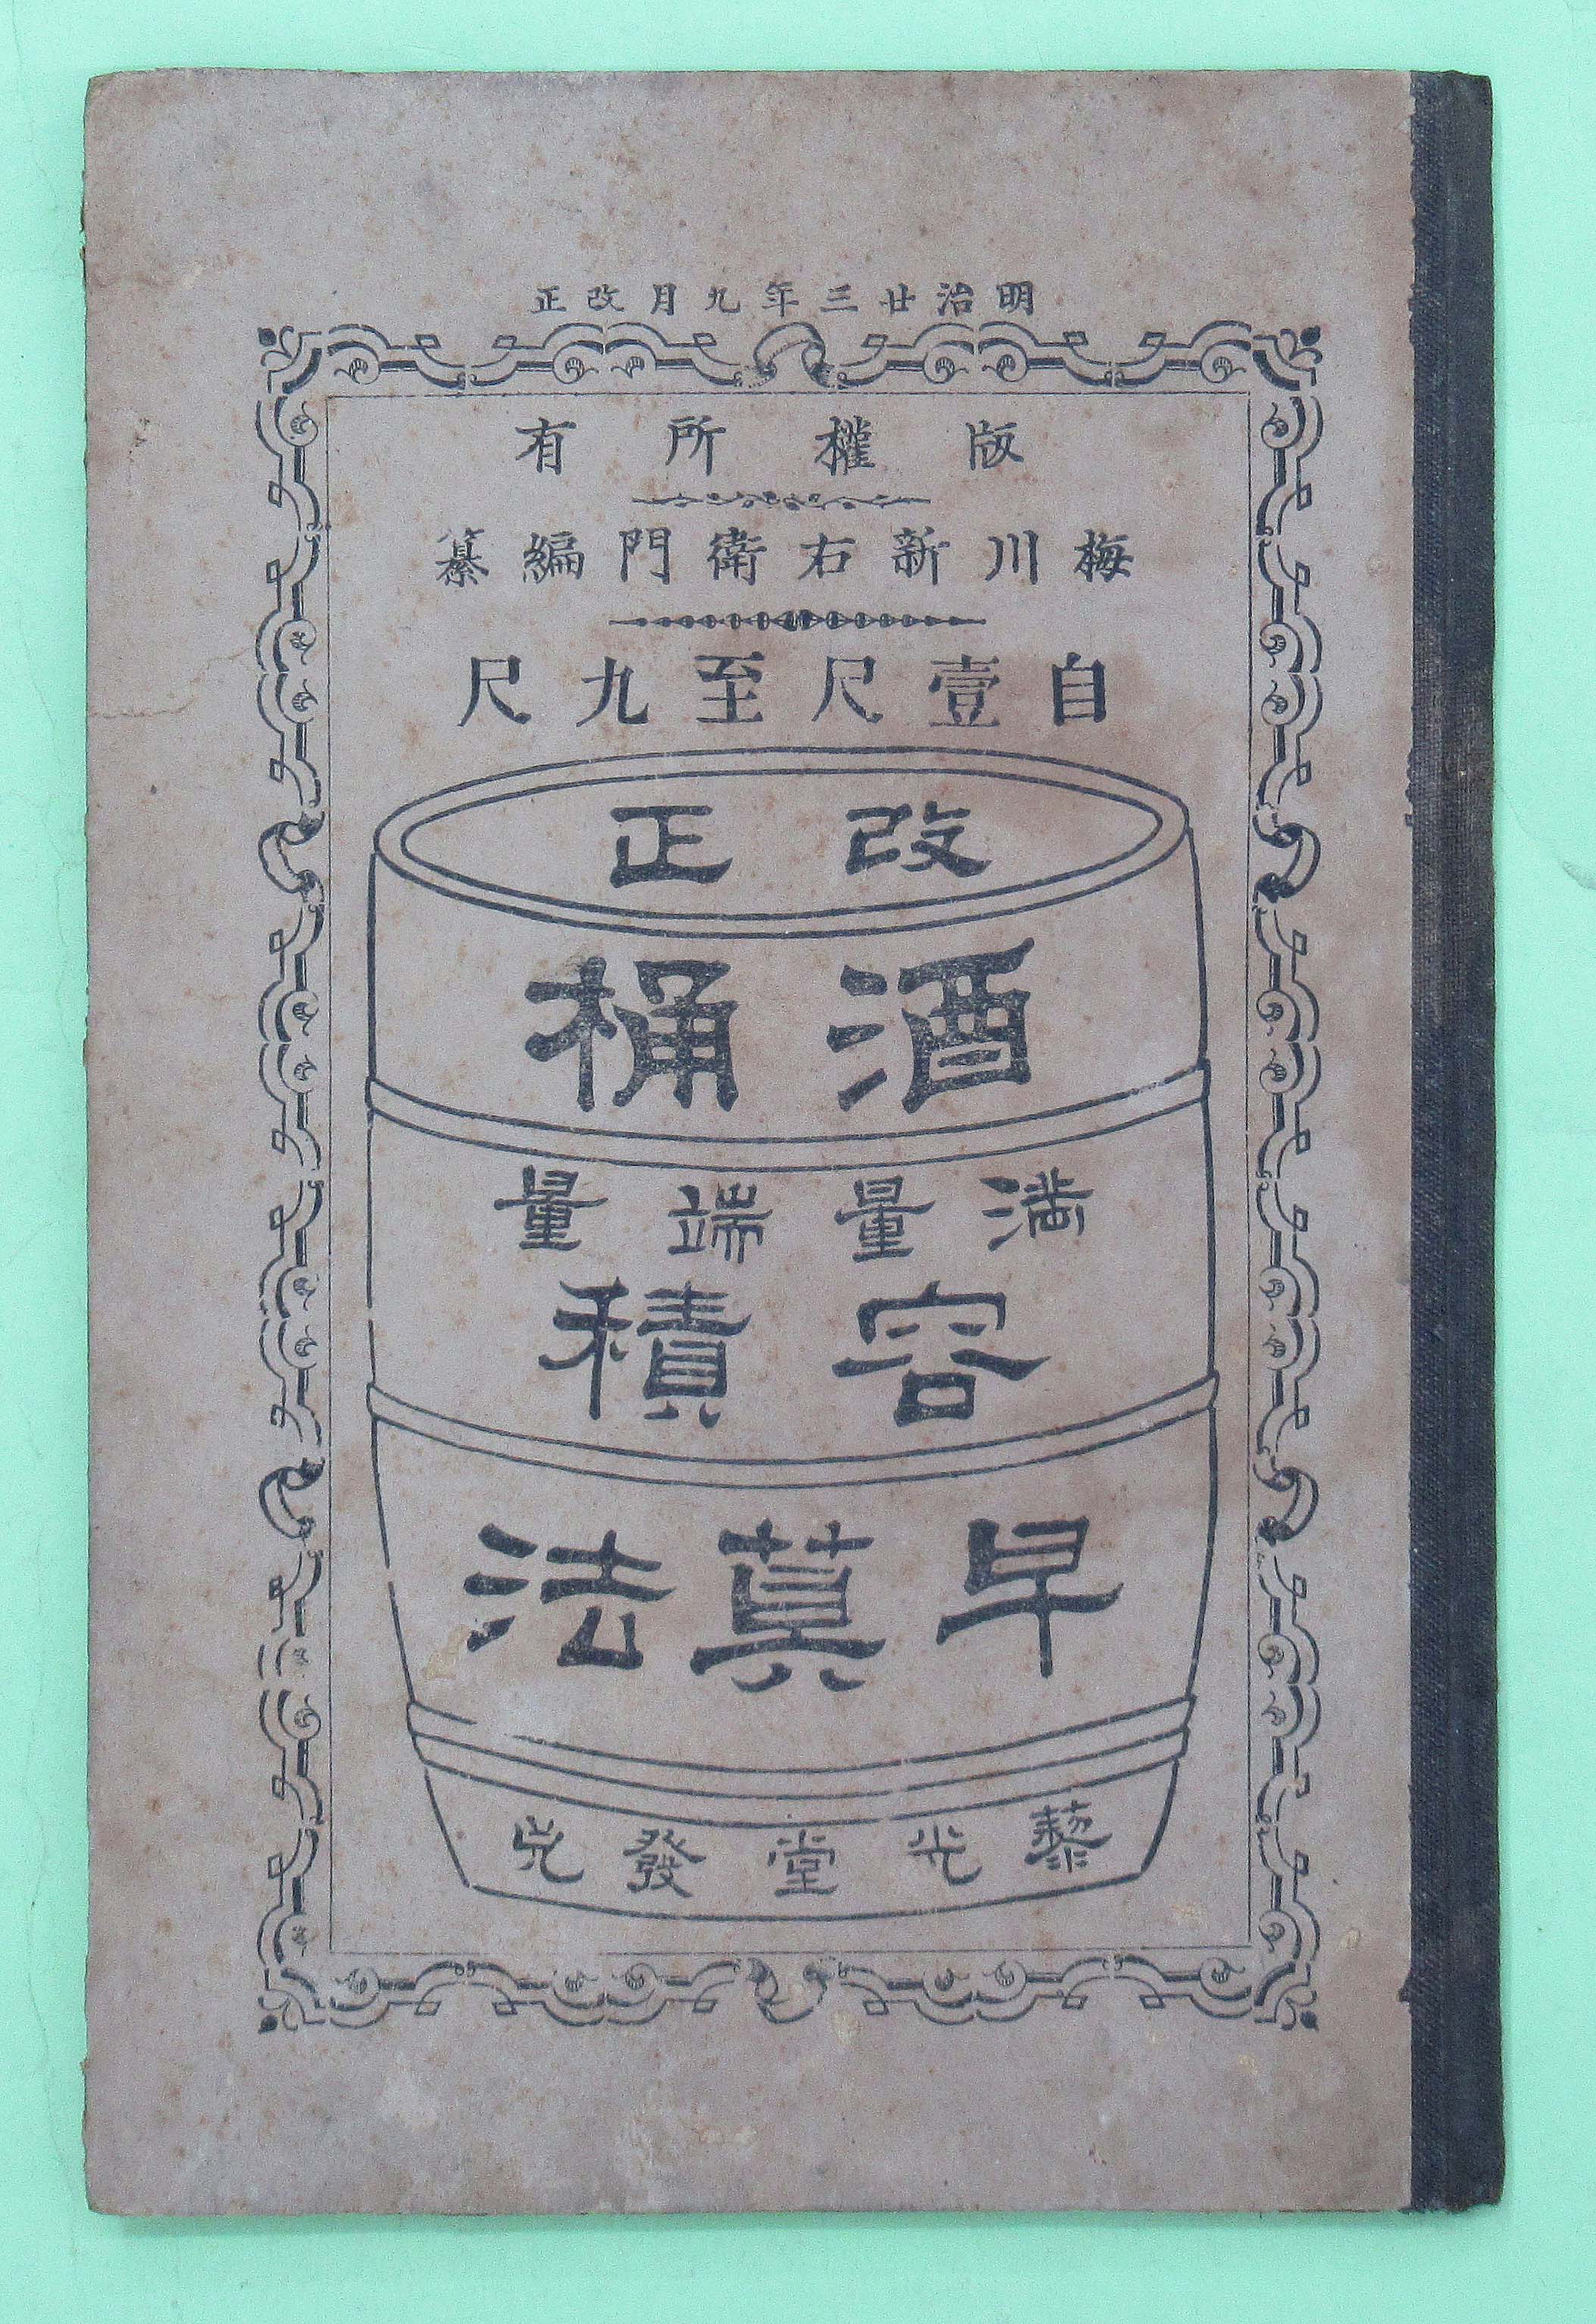 明治廿三年九月改正
版權所有
梅川新右衛門編纂
自壹尺至九尺
改正
酒桶
満量端量
容積
早算法
藜光堂發兌